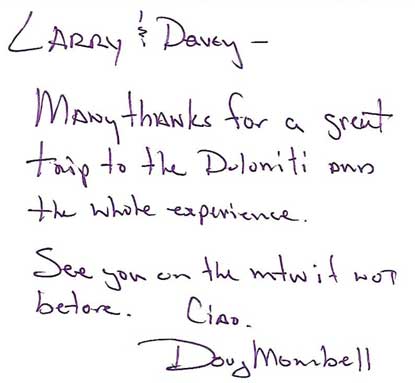 Larry & Davey –
Many thanks for a great
trip to the Dolomiti and
the whole experience.
See you on the mtn if not
before. Ciao.
Doug Mombell